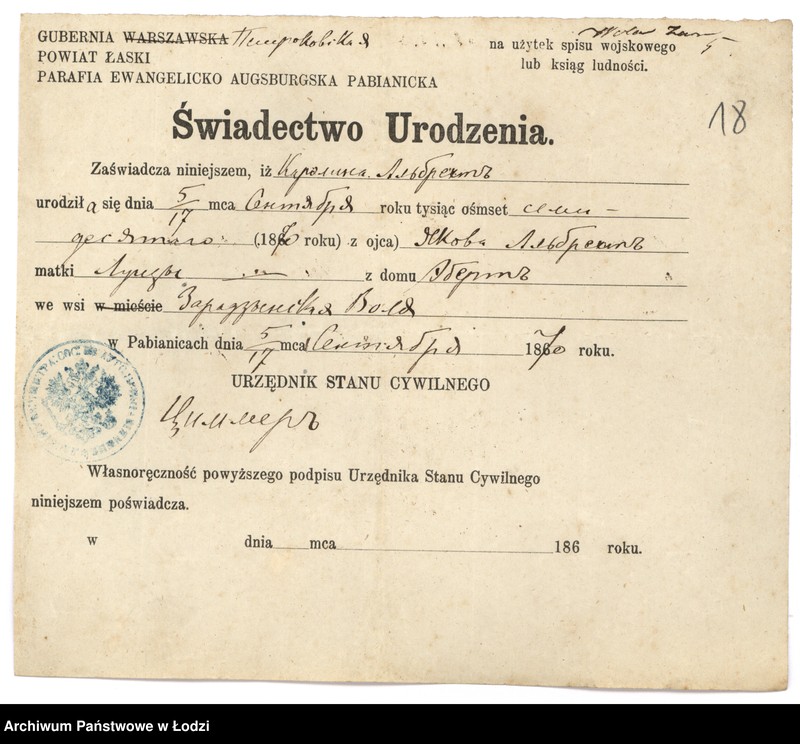 GUBERNIA WARSZAWSKA Петроковская
Wola Zar
POWIAT ŁASKI
PARAFIA EWANGELICKO AUGSBURGSKA PABIANICKA
na użytek spisu wojskowego
lub ksiąg ludności.
18
Świadectwo Urodzenia.
Zaświadcza niniejszem, iż Каролина Альбрехтъ
urodziła się dnia 5/17 mca Сентября roku tysiąc ośmset семи-
десятаго (1870 roku) z ojca) Якова Альбрехтъ
matki Луизы z domu Эбертъ
we wsi w mieście Зарадзынская Воля
w Pabianicach dnia 5/17 mca Сентября 1870 roku.
URZĘDNIK STANU CYWILNEGO
Циммеръ
Własnoręczność powyższego podpisu Urzędnika Stanu Cywilnego
niniejszem poświadcza.
w dnia mca 186 roku.
Archiwum Państwowe w Łodzi